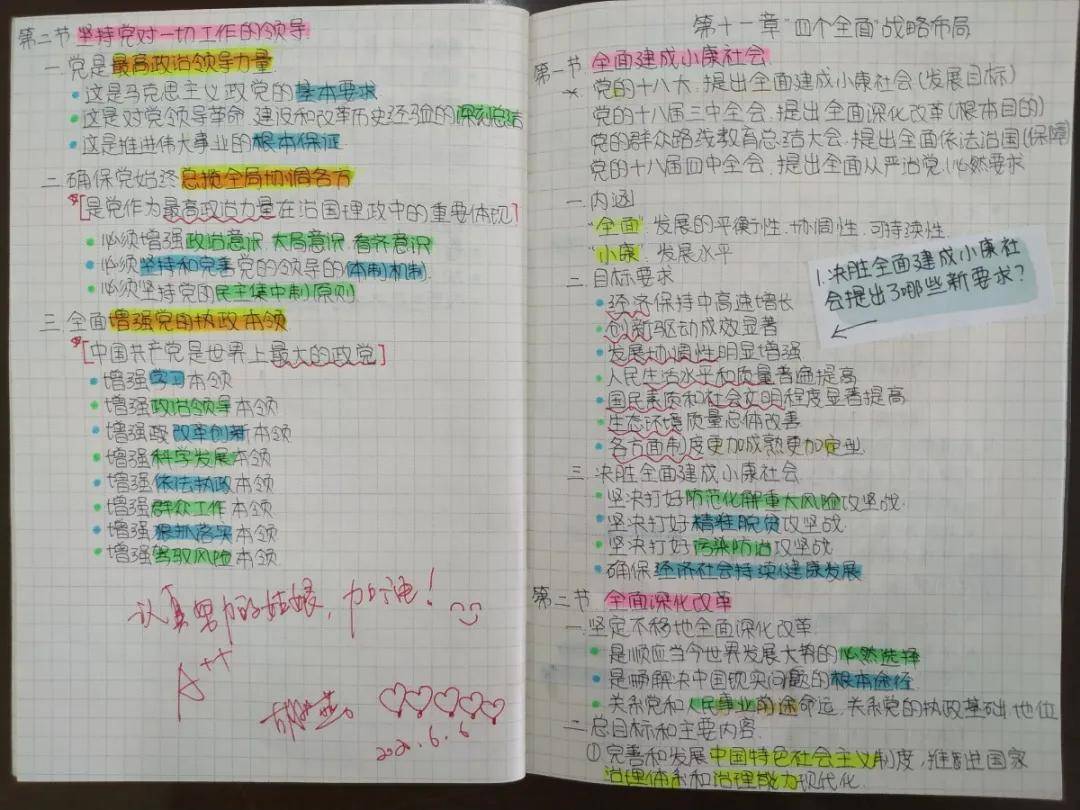 第二节 坚持党对一切工作的领导
一.党是最高政治领导力量
• 这是马克思主义政党的基本要求
• 这是对党领导革命.建设和改革历史经验的深刻总结
• 这是推进伟大事业的根本保证
二.确保党始终总揽全局协调各方
[是党作为最高政治力量在治国理政中的重要体现]
• 必须增强政治意识.大局意识.看齐意识
• 必须坚持和完善党的领导的体制机制.
• 必须坚持党的民主集中制原则
三.全面增强党的执政本领
[中国共产党是世界上最大的政党]
• 增强学习本领
• 增强政治领导本领
• 增强改革创新本领
• 增强科学发展本领
• 增强依法执政本领
• 增强群众工作本领
• 增强狠抓落实本领
• 增强驾驭风险本领
认真努力的姑娘，加油！
A++
2020.6.6
第十一章"四个全面"战略布局
第一节 全面建成小康社会
党的十八大.提出全面建成小康社会(发展目标)
党的十八届三中全会.提出全面深化改革(根本目的)
党的群众路线教育总结大会.提出全面依法治国(保障)
党的十八届四中全会.提出全面从严治党.(必然要求
一.内涵
"全面".发展的平衡性.协调性.可持续性.
"小康".发展水平
1.决胜全面建成小康社
会提出了哪些新要求?
←
二.目标要求
• 经济保持中高速增长
• 创新驱动成效显著
• 发展协调性明显增强
• 人民生活水平和质量普遍提高
• 国民素质和社会文明程度显著提高
• 生态环境质量总体改善
• 各方面制度更加成熟更加定型.
三.决胜全面建成小康社会
• 坚决打好防范化解重大风险攻坚战.
• 坚决打好精准脱贫攻坚战.
• 坚决打好污染防治攻坚战
• 确保经济社会持续健康发展
第二节 全面深化改革
一.坚定不移地全面深化改革
• 是顺应当今世界发展大势的必然选择
• 是解决中国现实问题的根本途径.
• 关系党和人民事业前途命运.关系党的执政基础.地位
二.总目标和主要内容.
①完善和发展中国特色社会主义制度，推进国家
治理体系和治理能力现代化.